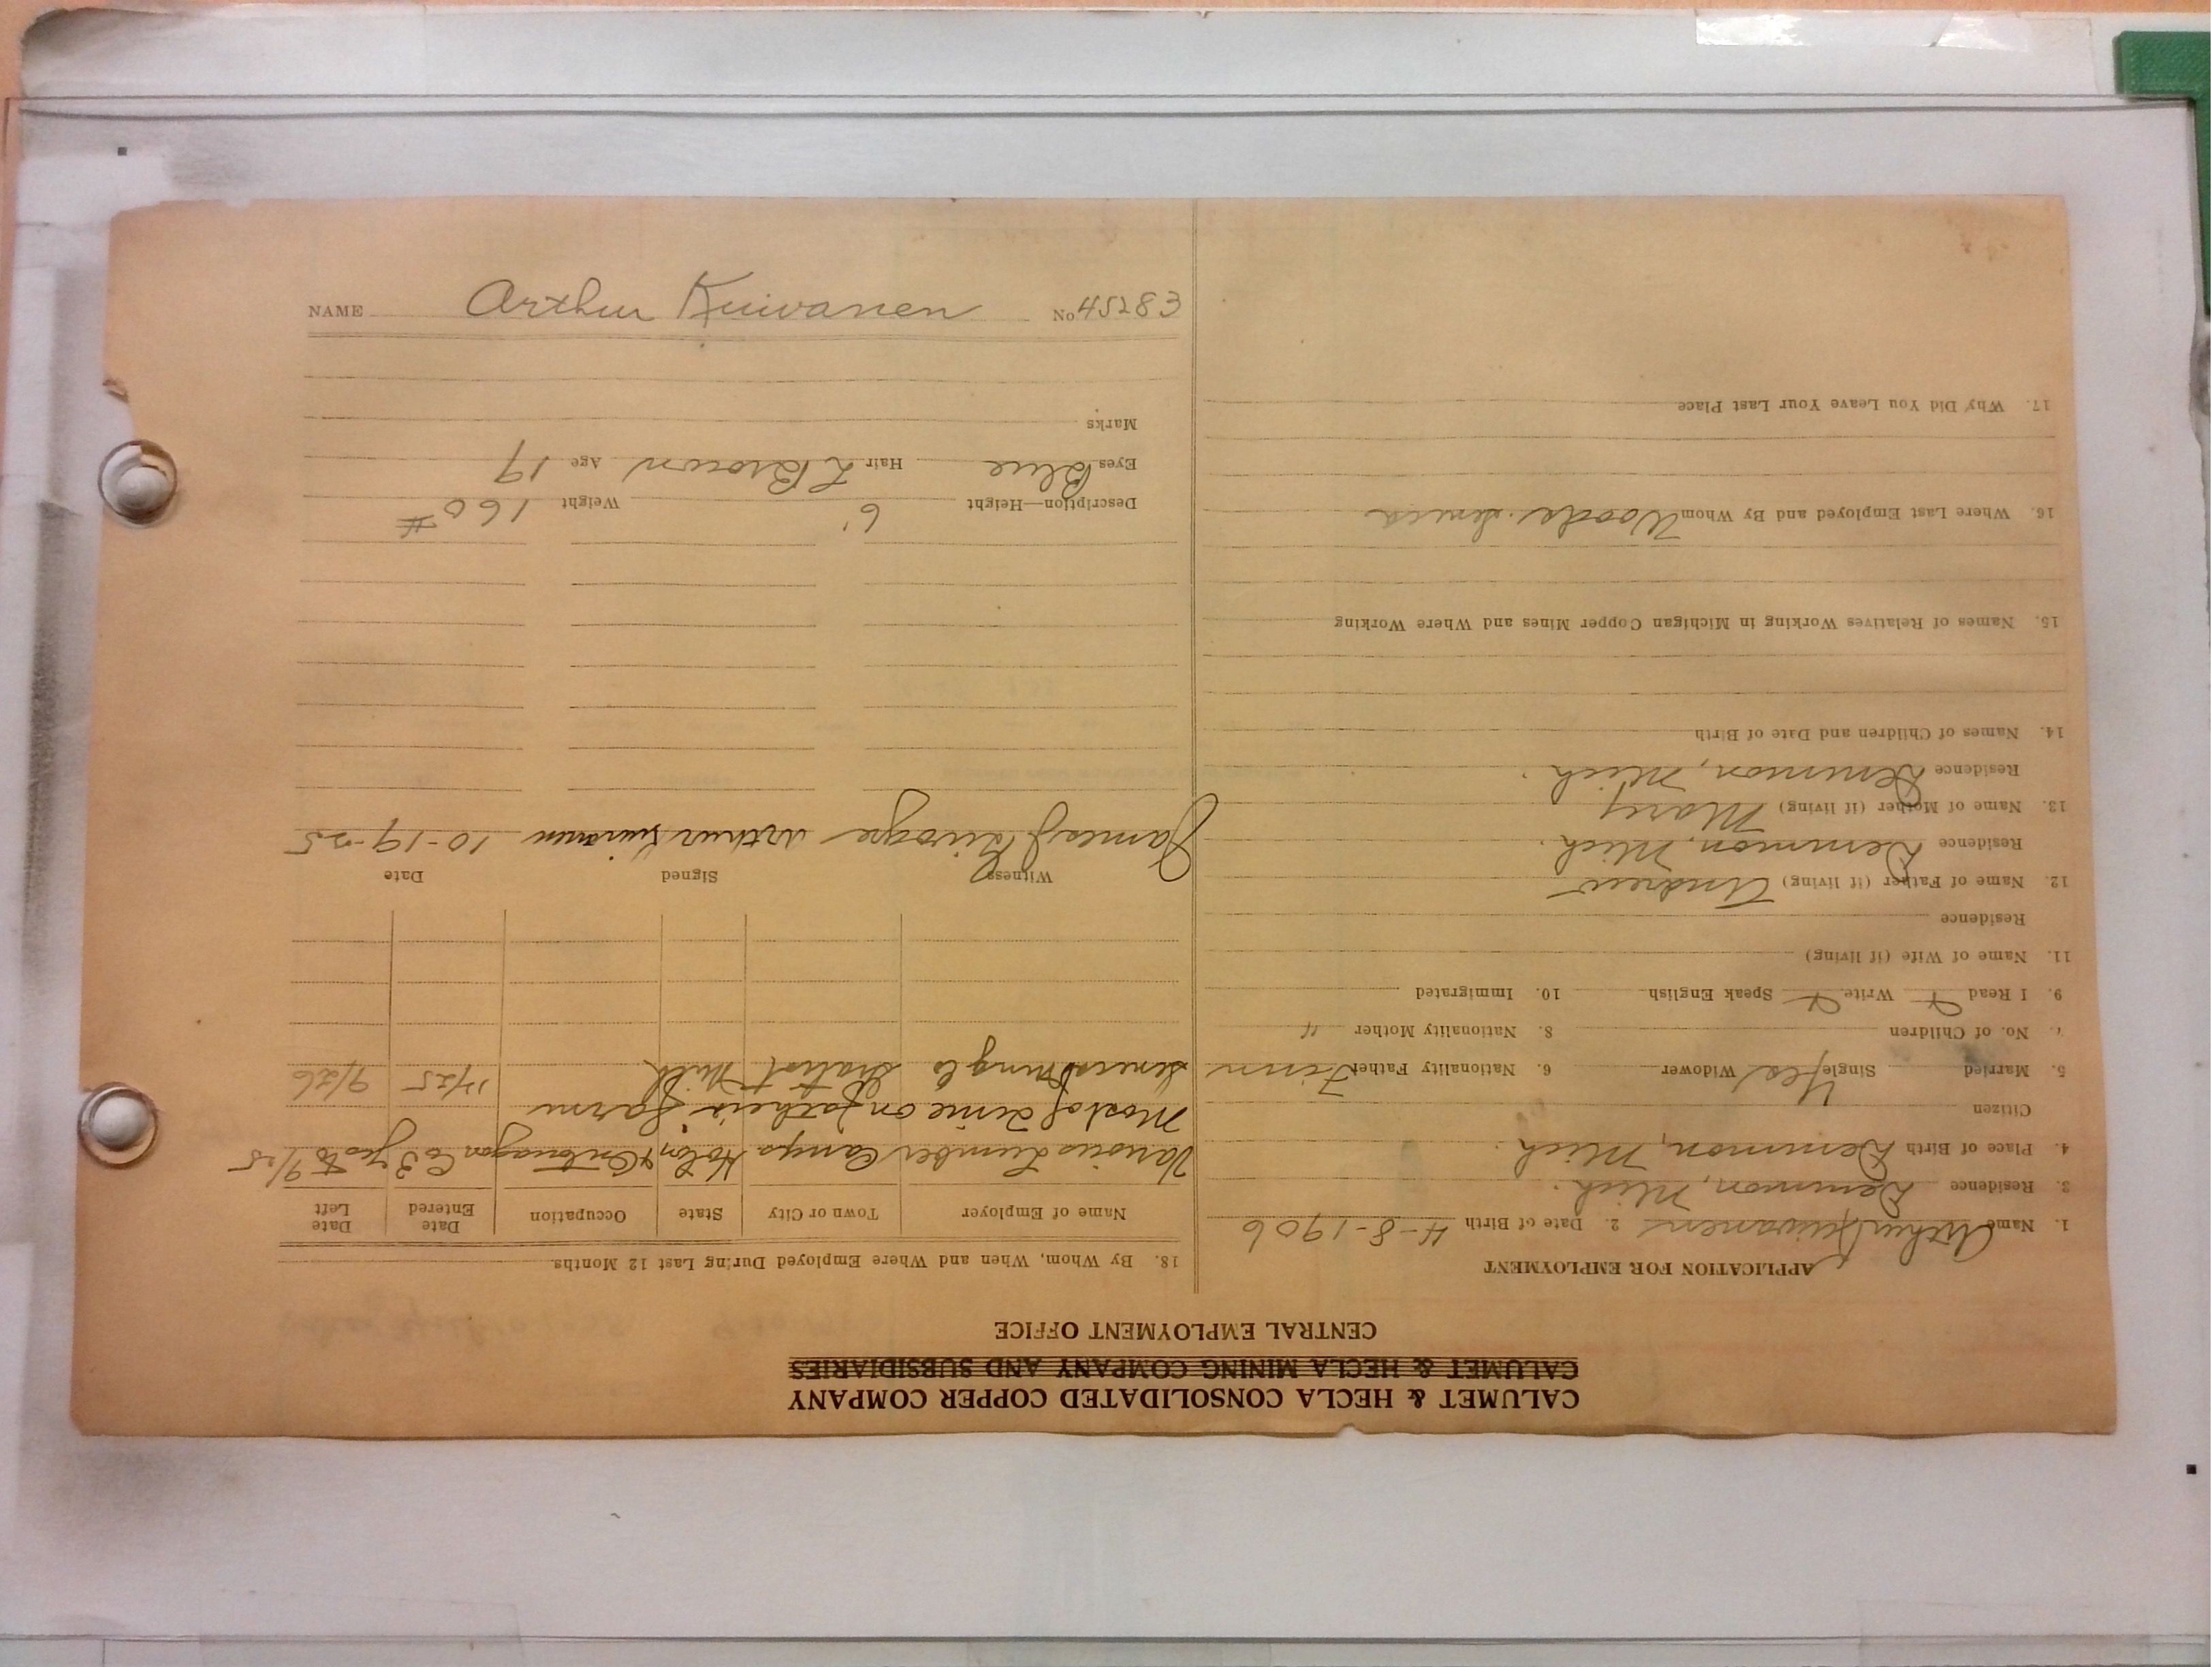 CALUMET & HECLA CONSOLIDATED COPPER COMPANY
CALUMET & HECLA MINING COMPANY AND SUBSIDIARIES
CENTRAL EMPLOYMENT OFFICE
APPLICATION FOR EMPLOYMENT
1. Name Arthur Kuivanen 2. Date of Birth 4-8-1906
3. Residence Demmon, Mich.
4. Place of Birth Demmon, Mich.
Citizen
5. Married Single Yes Widower 6. Nationality Father Finn
7. No. of Children 8. Nationality Mother "
9. I Read Write Speak English 10. Immigrated
11. Name of Wife (if living)
Residence
12. Name of Father (if living) Andrew
Residence Demmon, Mich.
13. Name of Mother (if living) Mary
Residence Demmon, Mich.
14. Names of Children and Date of Birth
15. Names of Relatives Working in Michigan Copper Mines and Where Working
16. Where Last Employed and By Whom Woods. Seneca
17. Why Did You Leave Your Last Place
18. By Whom, When and Where Employed During Last 12 Months
Name of Employer Town or City State Occupation Date Entered Date Left
Various Lumber Camps Hoton & Ontonagon Co 3 yrs to 9/25
Most of time on father's farm
Seneca Mng Co Gratiot Mill 11/25 9/26
Witness Signed Date
James Arthur Kuivanen 10-19-25
Description—Height 6' Weight 160 #
Eyes Blue Hair L Brown Age 19
Marks
NAME Arthur Kuivanen No 45283